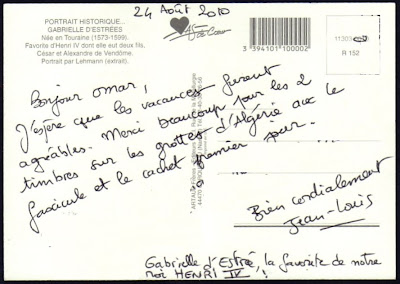 24 Août 2010
PORTRAIT HISTORIQUE...
GABRIELLE D'ESTRÉES
Née en Touraine (1573-1599).
Favorite d'Henri IV dont elle eut deux fils,
César et Alexandre de Vendôme.
Portrait par Lehmann (extrait).
As de Cœur
3 394101 100002
11303
R 152
Bonjour Omar,
J'espère que les vacances furent
agréables. Merci beaucoup pour les 2
timbres sur les grottes d'Algérie avec le
fascicule et le cachet premier jour.
Bien cordialement
Jean-Louis
Gabrielle d'Estrée, la favorite de notre
roi HENRI IV !